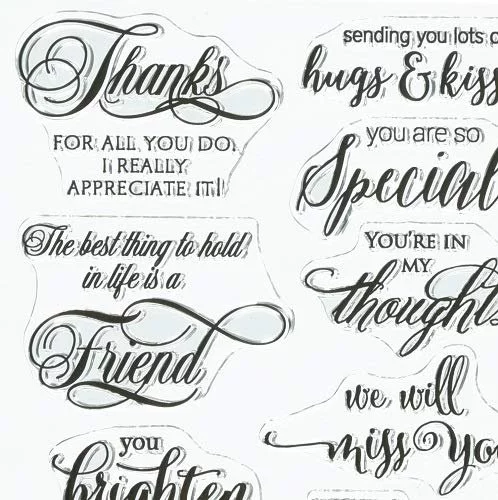 Thanks
FOR ALL YOU DO.
I REALLY
APPRECIATE IT!
The best thing to hold
in life is a
Friend
you
brighten
sending you lots
hugs & kiss
you are so
Special
YOU'RE IN
MY
thoughts
we will
miss you